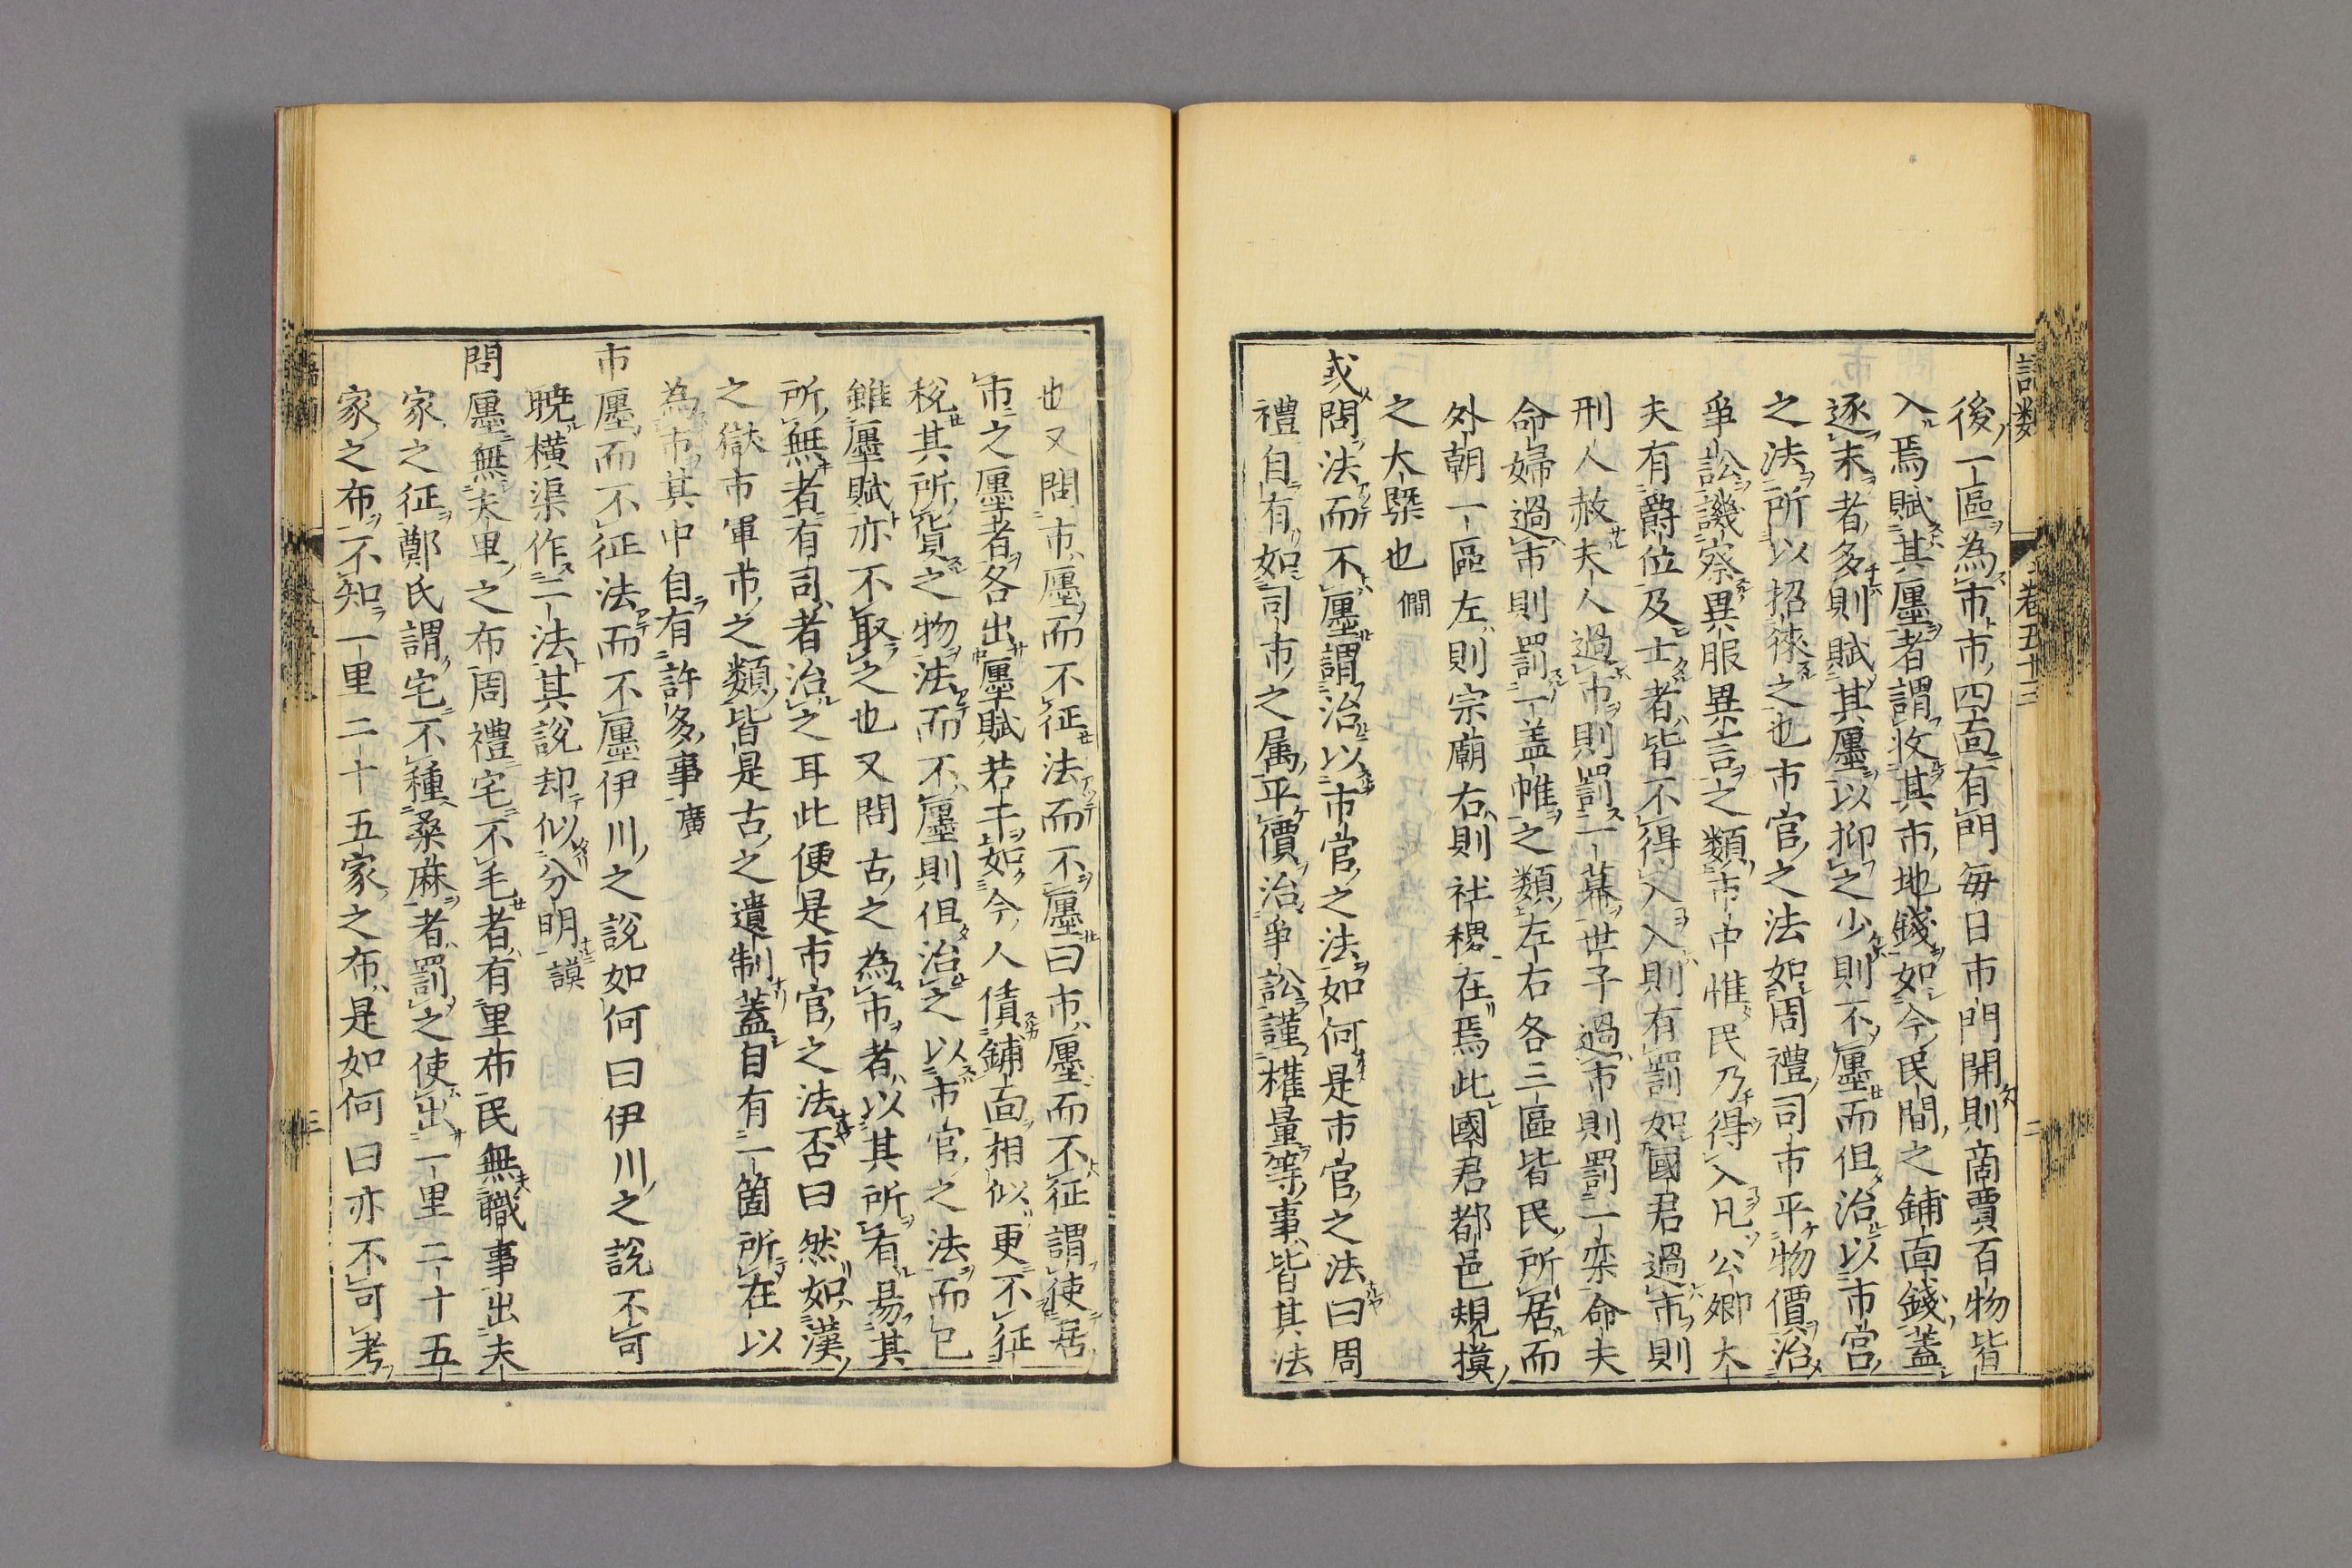 語類 卷五十三 二
後一區為市市四面有門每日市門開則商賈百物皆
入焉賦其廛者謂收其市地錢如今民間之鋪面錢蓋
逐末者多則賦其廛以抑之少則不廛而但治以市官
之法所以招徠之也市官之法如周禮司市平物價治
爭訟譏察異服異言之類市中惟民乃得入凡公卿大
夫有爵位及士者皆不得入入則有罰如國君過市則
刑人赦夫人過市則罰一幕世子過市則罰一帟命夫
命婦過市則罰一盖帷之類左右各三區皆民所居而
外朝一區左則宗廟右則社稷在焉此國君都邑規摸
之大槩也 僩
或問法而不廛謂治以市官之法如何是市官之法曰周
禮自有如司市之属平價治爭訟謹權量等事皆其法
也又問市廛而不征法而不廛曰市廛而不征謂使居
市之廛者各出廛賦若干如今人賃鋪面相似更不征
稅其所貨之物法而不廛則但治之以市官之法而已
雖廛賦亦不取之也又問古之為市者以其所有易其
所無者有司者治之耳此便是市官之法否曰然如漢
之獄市軍市之類皆是古之遺制蓋自有一箇所在以
為市其中自有許多事 廣
市廛而不征法而不廛伊川之說如何曰伊川之說不可
曉橫渠作二法其說却似分明 謨
問廛無夫里之布周禮宅不毛者有里布民無職事出夫
家之征鄭氏謂宅不種桑麻者罰之使出一里二十五
家之布不知一里二十五家之布是如何曰亦不可考
三